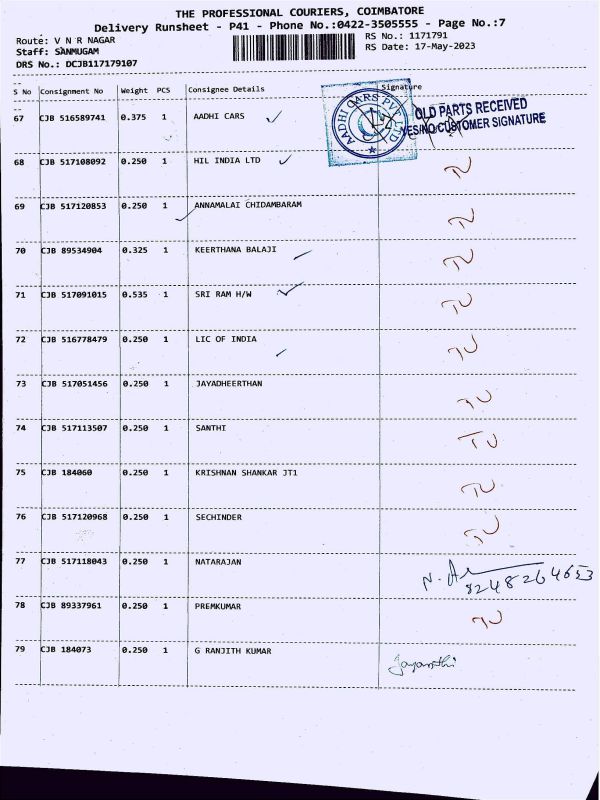 THE PROFESSIONAL COURIERS, COIMBATORE
Delivery Runsheet - P41 - Phone No.:0422-3505555 - Page No.:7
Route: V N R NAGAR RS No.: 1171791
Staff: SANMUGAM RS Date: 17-May-2023
DRS No.: DCJB117179107
S No Consignment No Weight PCS Consignee Details Signature
67 CJB 516589741 0.375 1 AADHI CARS
AADHI CARS PVT LTD
OLD PARTS RECEIVED
YES/NO CUSTOMER SIGNATURE
68 CJB 517108092 0.250 1 HIL INDIA LTD
69 CJB 517120853 0.250 1 ANNAMALAI CHIDAMBARAM
70 CJB 89534904 0.325 1 KEERTHANA BALAJI
71 CJB 517091015 0.535 1 SRI RAM H/W
72 CJB 516778479 0.250 1 LIC OF INDIA
73 CJB 517051456 0.250 1 JAYADHEERTHAN
74 CJB 517113507 0.250 1 SANTHI
75 CJB 184060 0.250 1 KRISHNAN SHANKAR JT1
76 CJB 517120968 0.250 1 SECHINDER
77 CJB 517118043 0.250 1 NATARAJAN
8248264653
78 CJB 89337961 0.250 1 PREMKUMAR
79 CJB 184073 0.250 1 G RANJITH KUMAR
Jayanthi